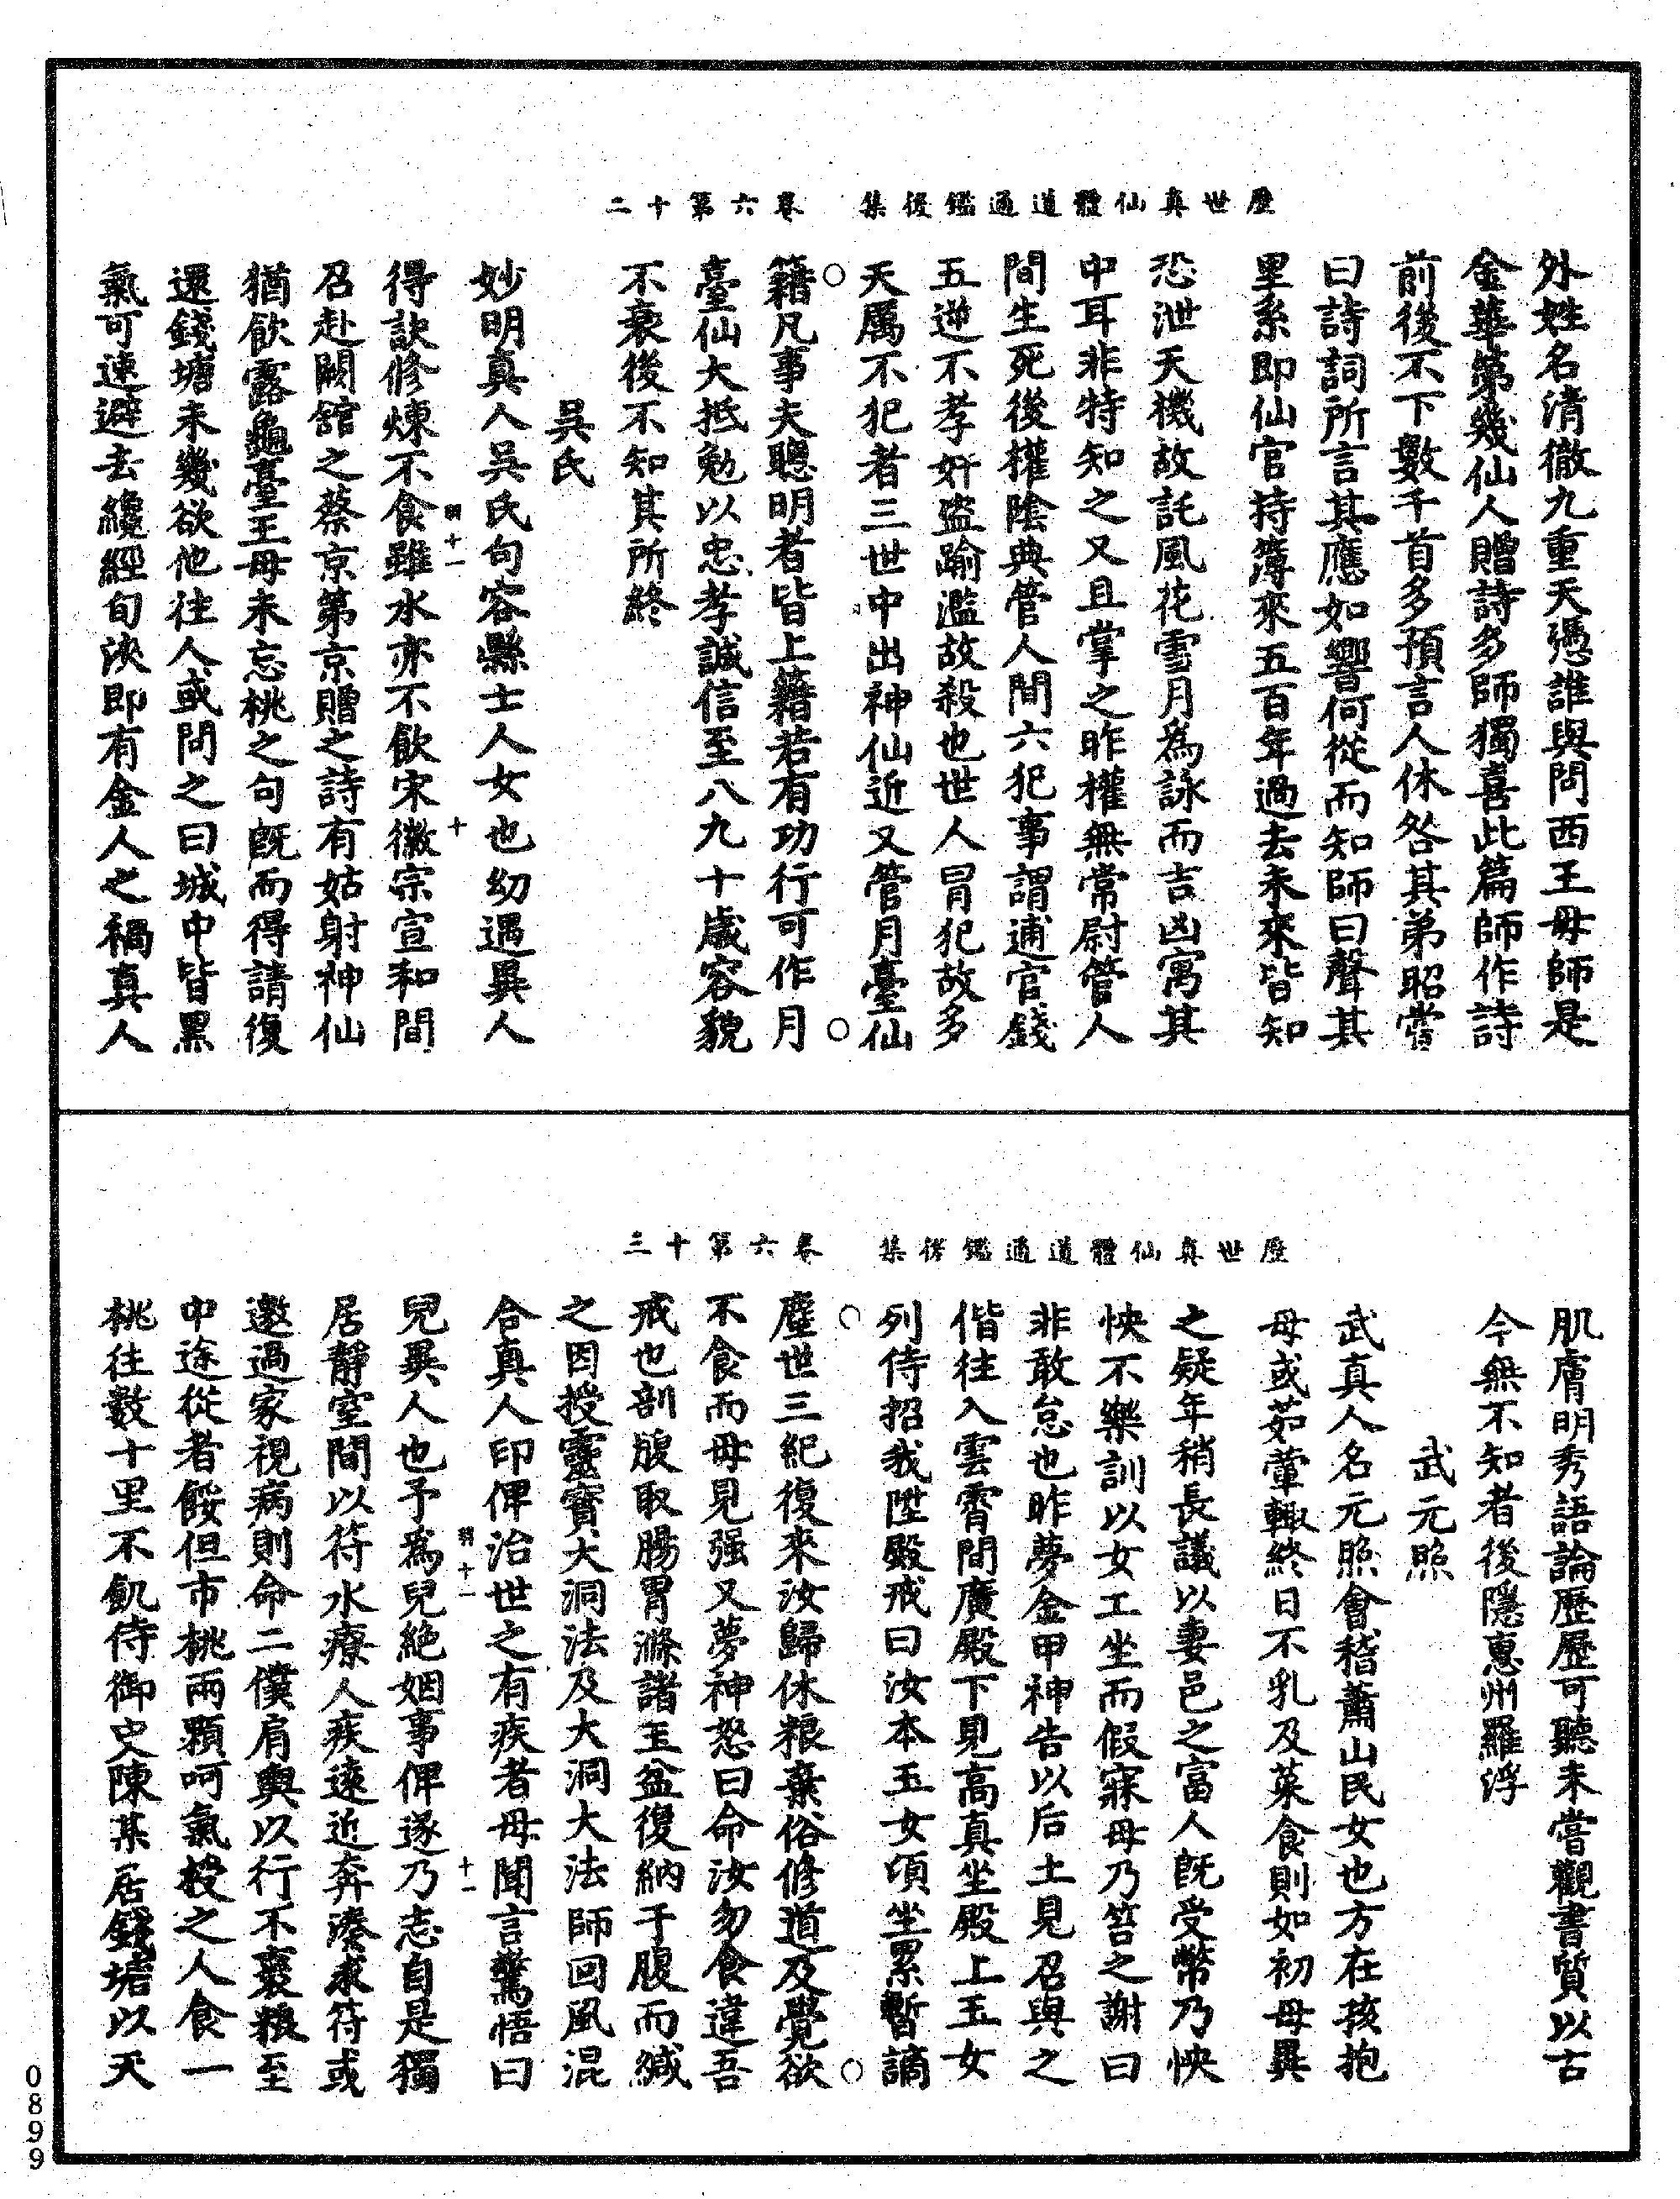 歷世真仙體道通鑑後集　卷六第十二
外姓名清徹九重天憑誰與問西王母師是
金華第幾仙人贈詩多師獨喜此篇師作詩
前後不下數千首多預言人休咎其弟昭嘗
曰詩詞所言其應如響何從而知師曰聲其
里系即仙官持簿來五百年過去未來皆知
恐泄天機故託風花雪月為詠而吉凶寓其
中耳非特知之又且掌之昨權無常尉管人
間生死後權陰典管人間六犯事謂逋官錢
五逆不孝奸盜踰濫故殺也世人冒犯故多
天厲不犯者三世中出神仙近又管月臺仙
籍凡事夫聰明者皆上籍若有功行可作月
臺仙大抵勉以忠孝誠信至八九十歲容貌
不衰後不知其所終
吳氏
妙明真人吳氏句容縣士人女也幼遇異人
得訣修煉不食雖水亦不飲宋徽宗宣和間
召赴闕舘之蔡京第京贈之詩有姑射神仙
猶飲露龜臺王母未忘桃之句既而得請復
還錢塘未幾欲他往人或問之曰城中皆黑
氣可速避去纔經旬浹即有金人之禍真人
十一
十
歷世真仙體道通鑑後集　卷六第十三
肌膚明秀語論歷歷可聽未嘗觀書質以古
今無不知者後隱惠州羅浮
武元照
武真人名元照會稽蕭山民女也方在孩抱
母或茹葷輒終日不乳及菜食則如初母異
之疑年稍長議以妻邑之富人既受幣乃怏
怏不樂訓以女工坐而假寐母乃笞之謝曰
非敢怠也昨夢金甲神告以后土見召與之
偕往入雲霄間廣殿下見高真坐殿上玉女
列侍招我陞殿戒曰汝本玉女頃坐累暫謫
塵世三紀復來汝歸休粮棄俗修道及覺欲
不食而母見强又夢神怒曰命汝勿食違吾
戒也剖腹取腸胃滌諸玉盆復納于腹而緘
之因授靈寶大洞法及大洞大法師回風混
合真人印俾治世之有疾者母聞言驚悟曰
兒異人也予為兒絕姻事俾遂乃志自是獨
居靜室間以符水療人疾遠近奔湊求符或
邀過家視病則命二僕肩輿以行不裹粮至
中途從者餒但市桃兩顆呵氣授之人食一
桃往數十里不飢侍御史陳某居錢塘以天
十一
十一
0899